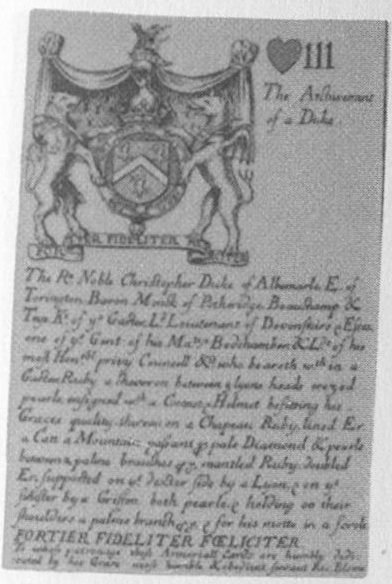 III
The Achievement
of a Duke.
FOR TER FIDELITER FOE CITER
The Rt. Noble Christopher Duke of Albemarle E. of
Torington Baron Monck of Potheridge Beauchamp &
Teys Kt. of ye Garter Ld. Lieutenant of Devonshire & Essex
one of ye Gent. of his Matys. Bedchamber & Lds. of his
most Honble. privy Councell &c. who beareth wth. in a
Garter Ruby a Cheveron between 3 lyons heads erazed
pearle ensigned wth. a Coronet & Helmet befitting his
Graces quality thereon on a Chapeau Ruby lined Er.
a Catt a Mountain passant pr. pale Diamond & pearle
between 2 palme branches mantled Ruby doubled
Er. supported on ye. dexter side by a Lyon & on ye.
sinister by a Griffon both pearle & holding on their
shoulders a palme branch & for his motto in a scrole
FORTIER FIDELITER FŒLICITER
To whose patronage these Armoriall Cards are humbly dedi-
cated by his Graces most humble & obedient servant Ric. Blome